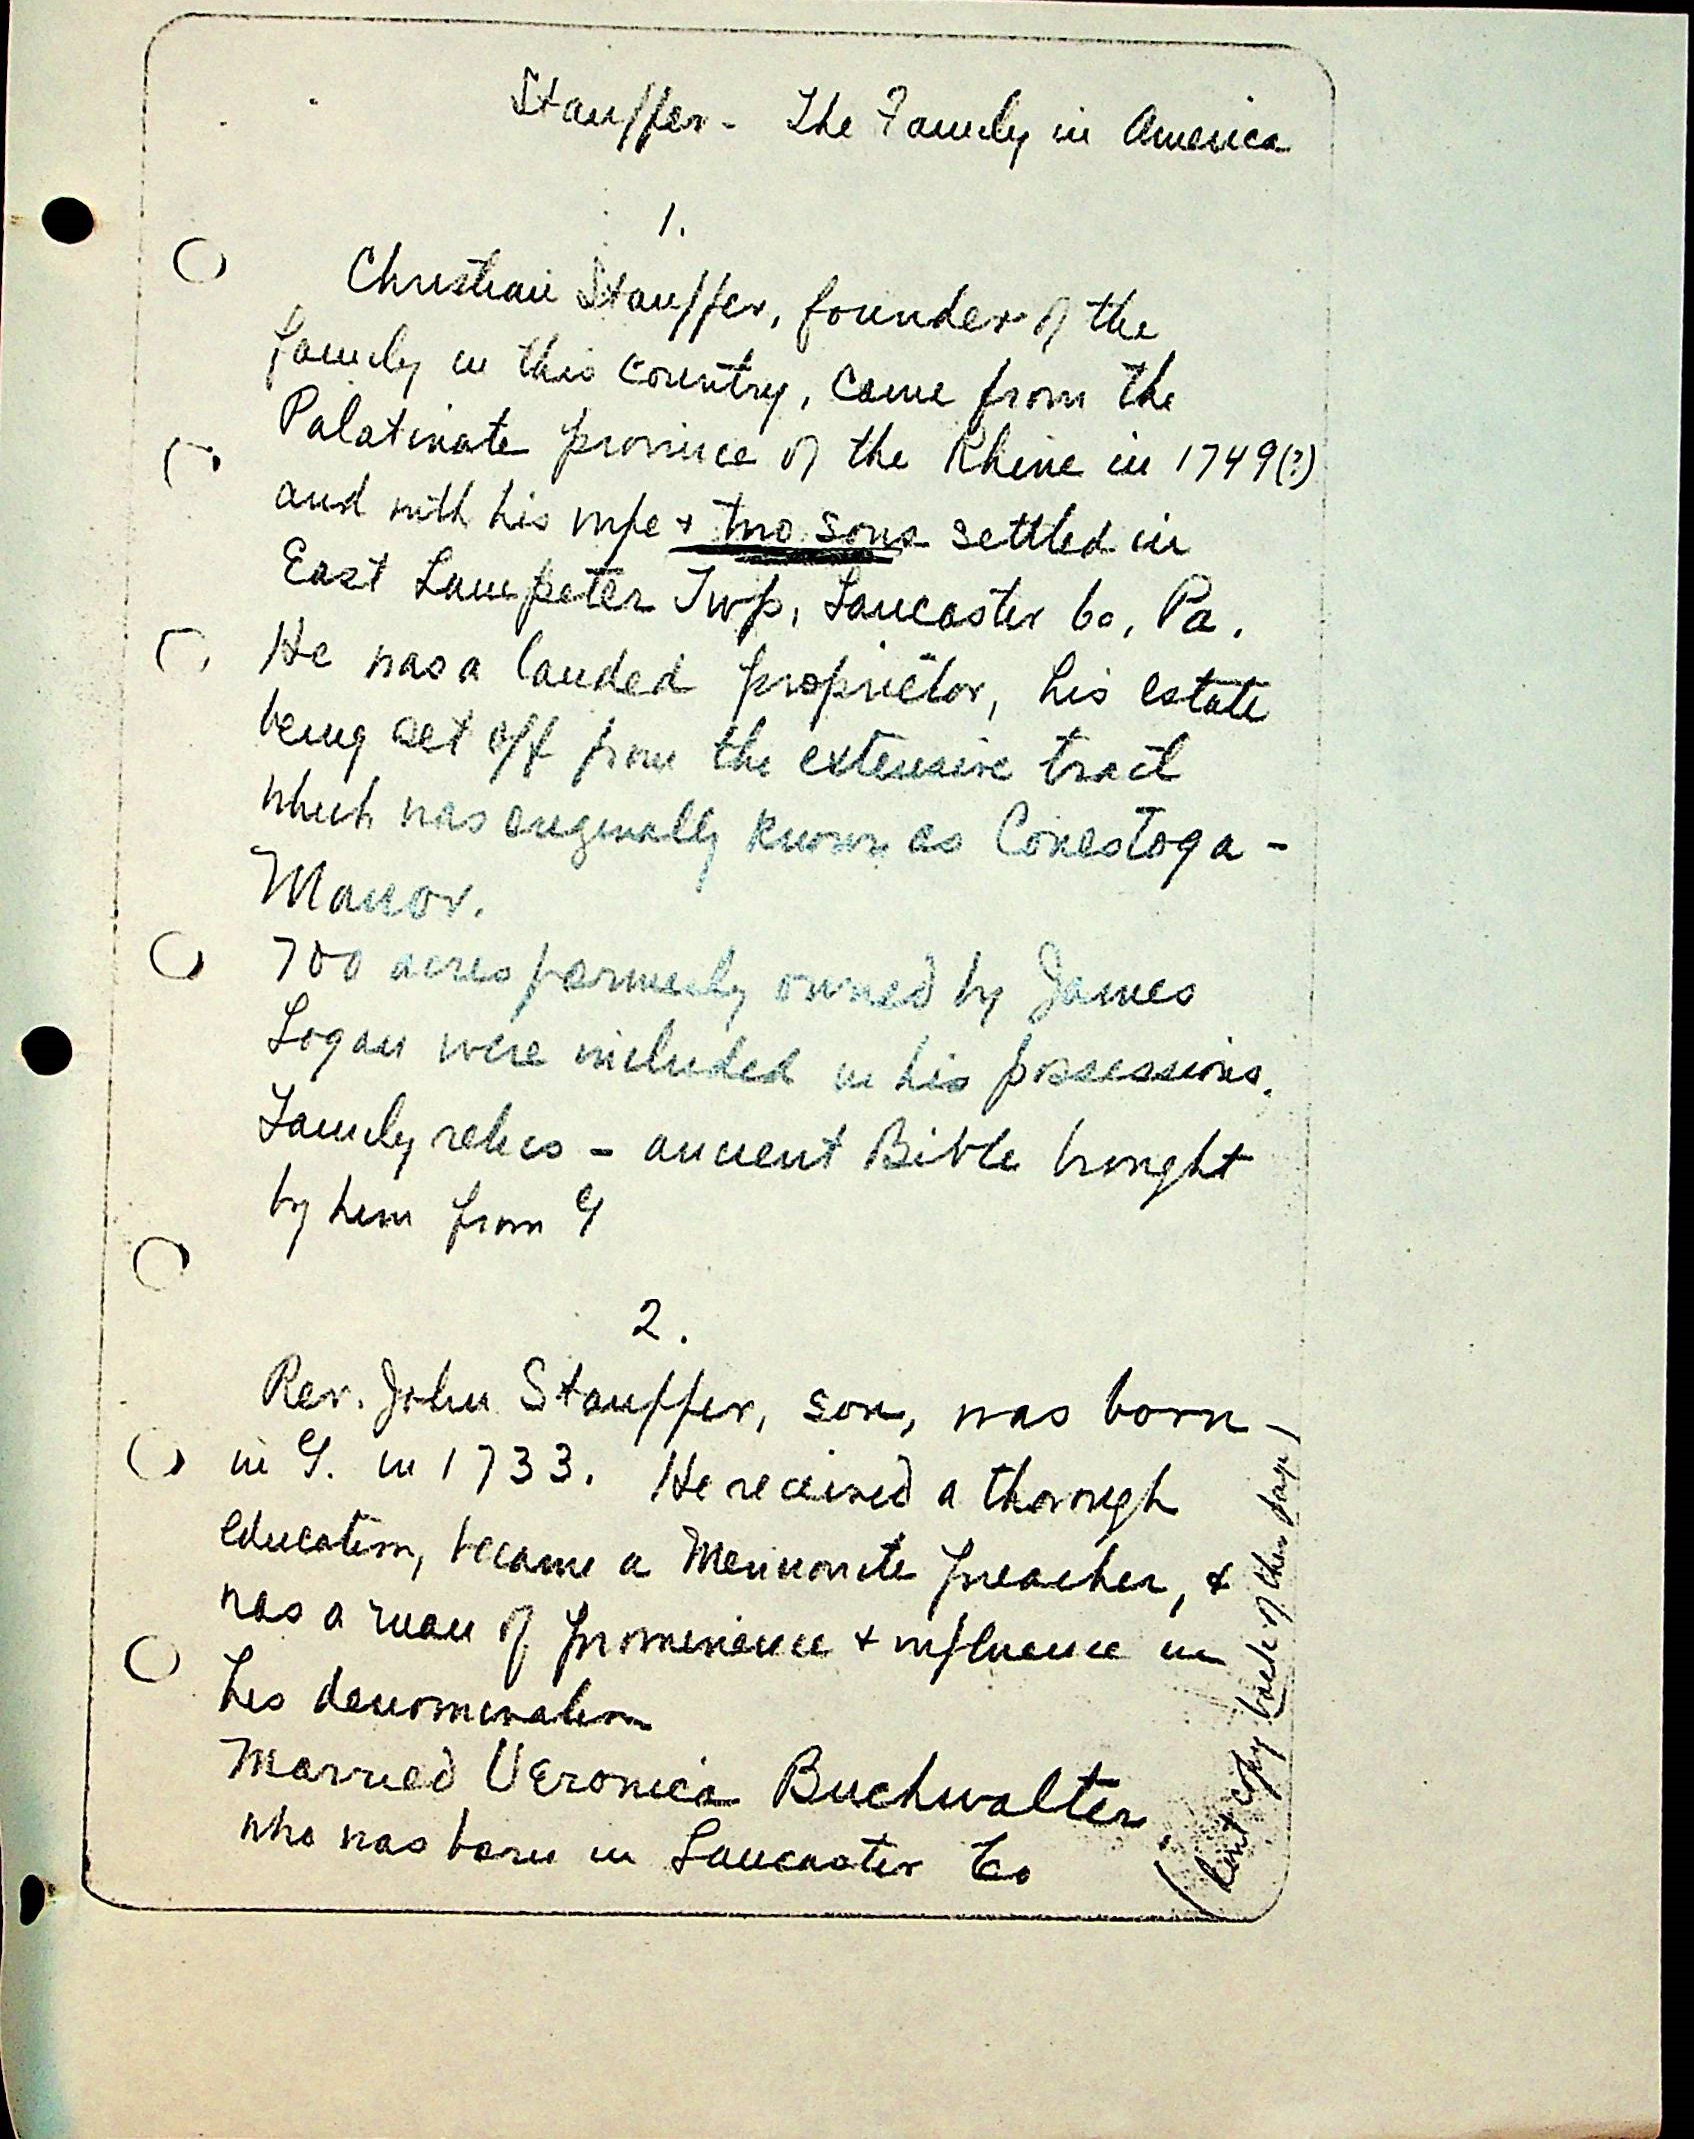 Stauffer - The Family in America
1.
Christian Stauffer, founder of the
family in this country, came from the
Palatinate province of the Rhine in 1749(?)
and with his wife + two sons settled in
East Lampeter Twp, Lancaster Co, Pa.
He was a landed proprietor, his estate
being set off from the extensive tract
which was originally known as Conestoga -
Manor.
700 acres formerly owned by James
Logan were included in his possessions.
Family relics - ancient Bible brought
by him from G
2.
Rev. John Stauffer, son, was born
in G. in 1733. He received a thorough
education, became a Mennonite preacher, +
was a man of prominence + influence in
his denomination
Married Veronica Buchwalter.
who was born in Lancaster Co
copy back of this page)